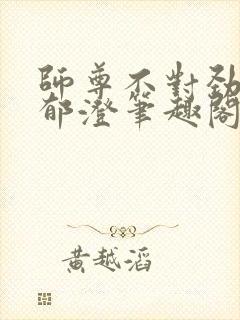 師尊不對勁
郁澄筆趣閣
黃越滔